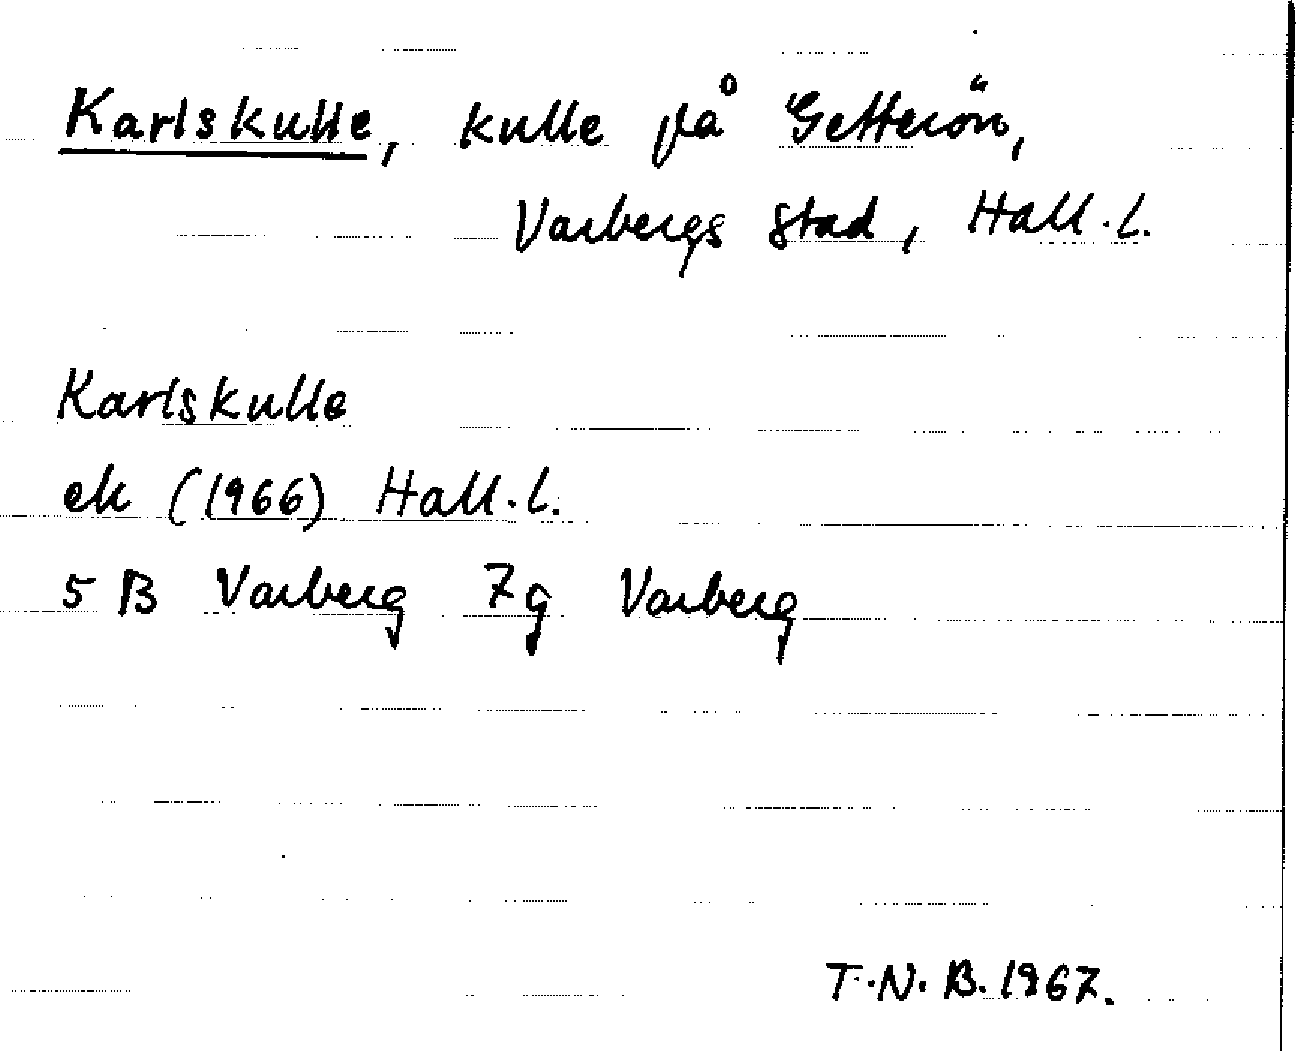 Karlskulle, kulle på Getterön,
Varbergs stad, Hall. l.
Karlskulle
ek (1966) Hall. l.
5 B Varberg 7g Varberg
T. N. B. 1967.